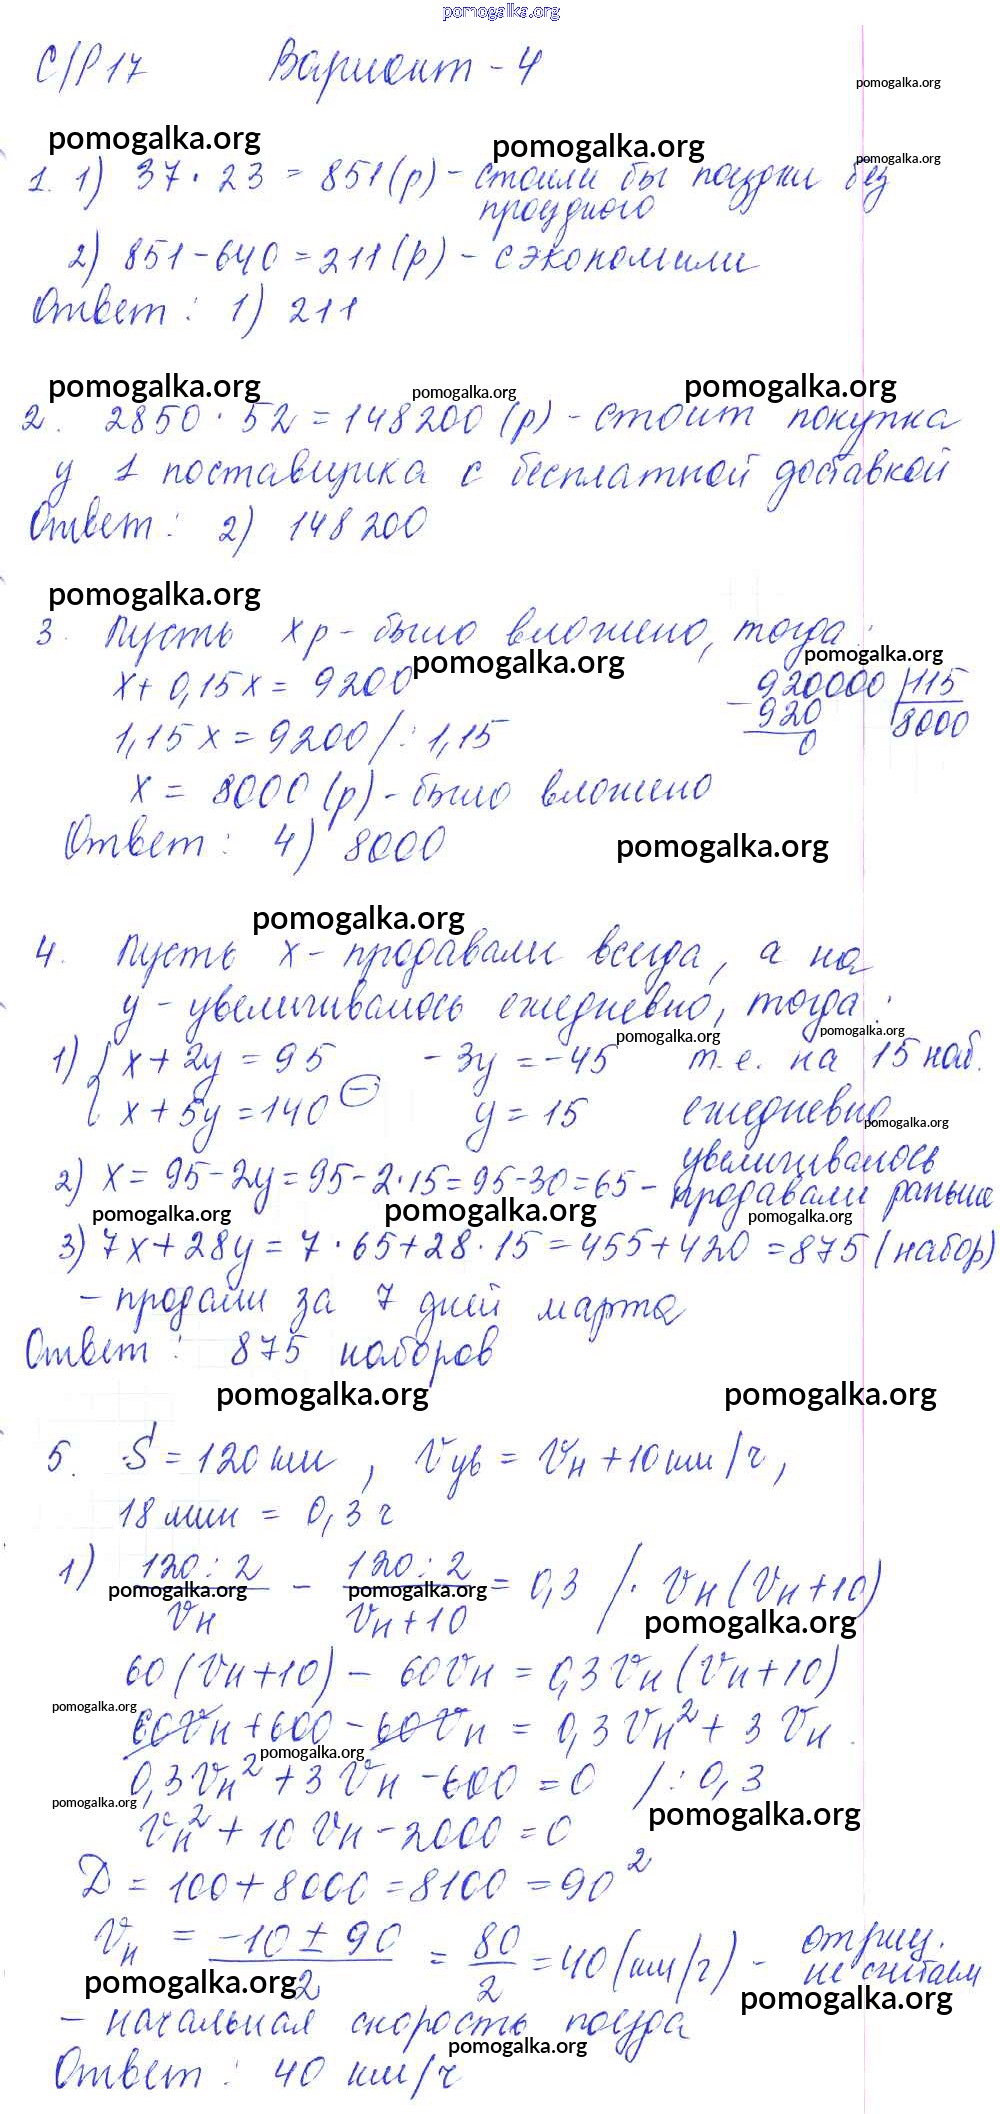 pomogalka.org
С/Р 17 Вариант - 4
pomogalka.org
pomogalka.org pomogalka.org
pomogalka.org
1. 1) 37 · 23 = 851 (р) - стоили бы поездки без
проездного
2) 851 - 640 = 211 (р) - сэкономили
Ответ : 1) 211
pomogalka.org pomogalka.org pomogalka.org
2. 2850 · 52 = 148200 (р) - стоит покупка
у 1 поставщика с бесплатной доставкой
Ответ : 2) 148 200
pomogalka.org
3. Пусть х р - было вложено, тогда :
pomogalka.org pomogalka.org
х + 0,15 х = 9200
920000 115
- 920 8000
0
1,15 х = 9200 / : 1,15
х = 8000 (р) - было вложено
Ответ : 4) 8000
pomogalka.org
pomogalka.org
4. Пусть х - продавали всегда, а на
у - увеличивалось ежедневно, тогда :
pomogalka.org pomogalka.org
1) { х + 2у = 95 - 3у = - 45 т.е. на 15 наб.
х + 5у = 140 (-) у = 15 ежедневно
pomogalka.org
увеличивалось
2) х = 95 - 2у = 95 - 2 · 15 = 95 - 30 = 65 - продавали раньше
pomogalka.org pomogalka.org pomogalka.org
3) 7х + 28у = 7 · 65 + 28 · 15 = 455 + 420 = 875 (набор)
- продали за 7 дней марта
Ответ : 875 наборов
pomogalka.org pomogalka.org
5. S = 120 км , Vув = Vн + 10 км/ч ,
18 мин = 0,3 ч
1) 120 : 2 / Vн - 120 : 2 / Vн + 10 = 0,3 / · Vн (Vн + 10)
pomogalka.org pomogalka.org
pomogalka.org
60 (Vн + 10) - 60 Vн = 0,3 Vн (Vн + 10)
pomogalka.org
60 Vн + 600 - 60 Vн = 0,3 Vн² + 3 Vн .
pomogalka.org
0,3 Vн² + 3 Vн - 600 = 0 / : 0,3
pomogalka.org pomogalka.org
Vн² + 10 Vн - 2000 = 0
Д = 100 + 8000 = 8100 = 90²
Vн = -10 ± 90 / 2 = 80 / 2 = 40 (км/ч) - отриц.
не считаем
pomogalka.org pomogalka.org
- начальная скорость поезда
pomogalka.org
Ответ : 40 км/ч